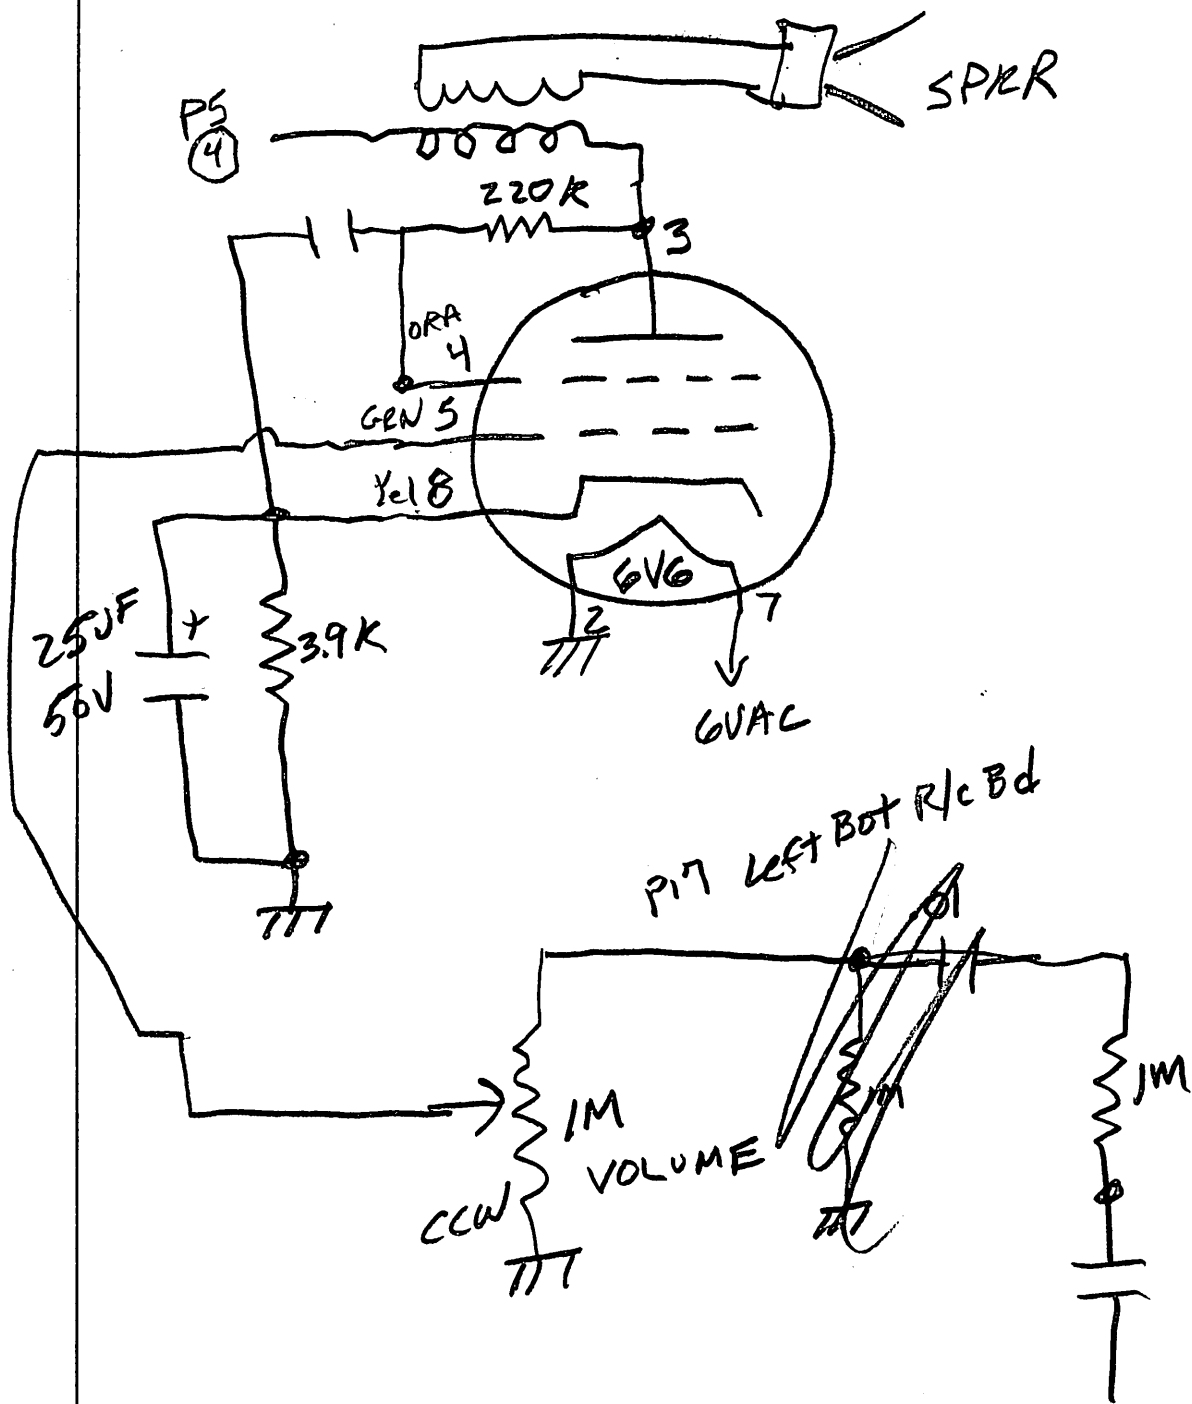 SPKR
PS
4
220K
3
ORA
4
GRN 5
Yel 8
6V6
2
7
25UF
+
50V
3.9K
6VAC
Pin Left Bot R/c Bd
1M
1M
VOLUME
CCW